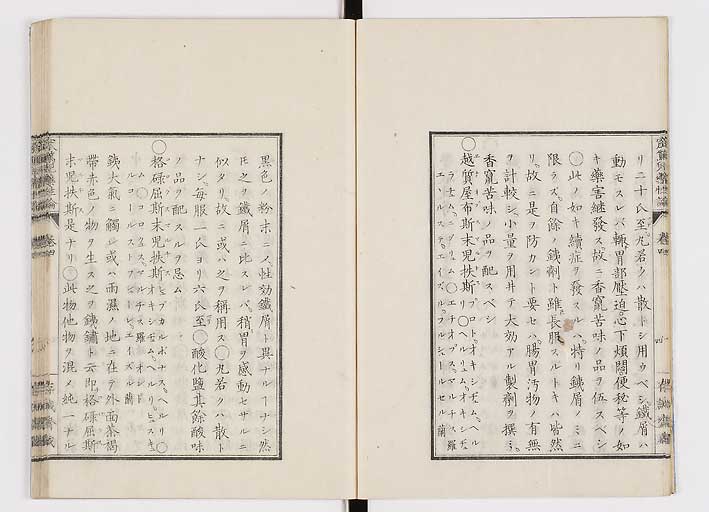 リ二十氏至丸若クハ散トシ用ウベシ鐵屑ハ
動モスレバ輙胃部壓迫心下煩悶便秘等ノ如
キ藥害継發ス故ニ香竄苦味ノ品ヲ伍スベシ
○此ノ如キ續症ヲ發スルハ特リ鐵屑ノミニ
限ラズ自餘ノ鐵劑ト雖長服スルトキハ皆然
リ故ニ是ヲ防カント要セハ腸胃汚物ノ有無
ヲ計較シ小量ヲ用井テ大効アル製劑ヲ撰ミ
香竄苦味ノ品ヲ配スベシ
○越質屋布斯末児扶斯
黒色ノ粉末ニノ性効鐵屑ト異ナルヿナシ然
𪜈之ヲ鐵屑ニ比スレバ稍胃ヲ感動セサルニ
似タリ故ニ或ハ之ヲ稱用ス○丸若クハ散ト
ナシ毎服一氏ヨリ六氏至○酸化鹽其餘酸味
ノ品ヲ配スルヲ忌ム
○格碌屈斯末児扶斯
鐵大氣ニ觸レ或ハ雨濕ノ地ニ在テ外面茶褐
帶赤色ノ物ヲ生ス之ヲ鐵鏽ト云即格碌屈斯
末児扶斯是ナリ○此物他物ヲ混メ純一ナル